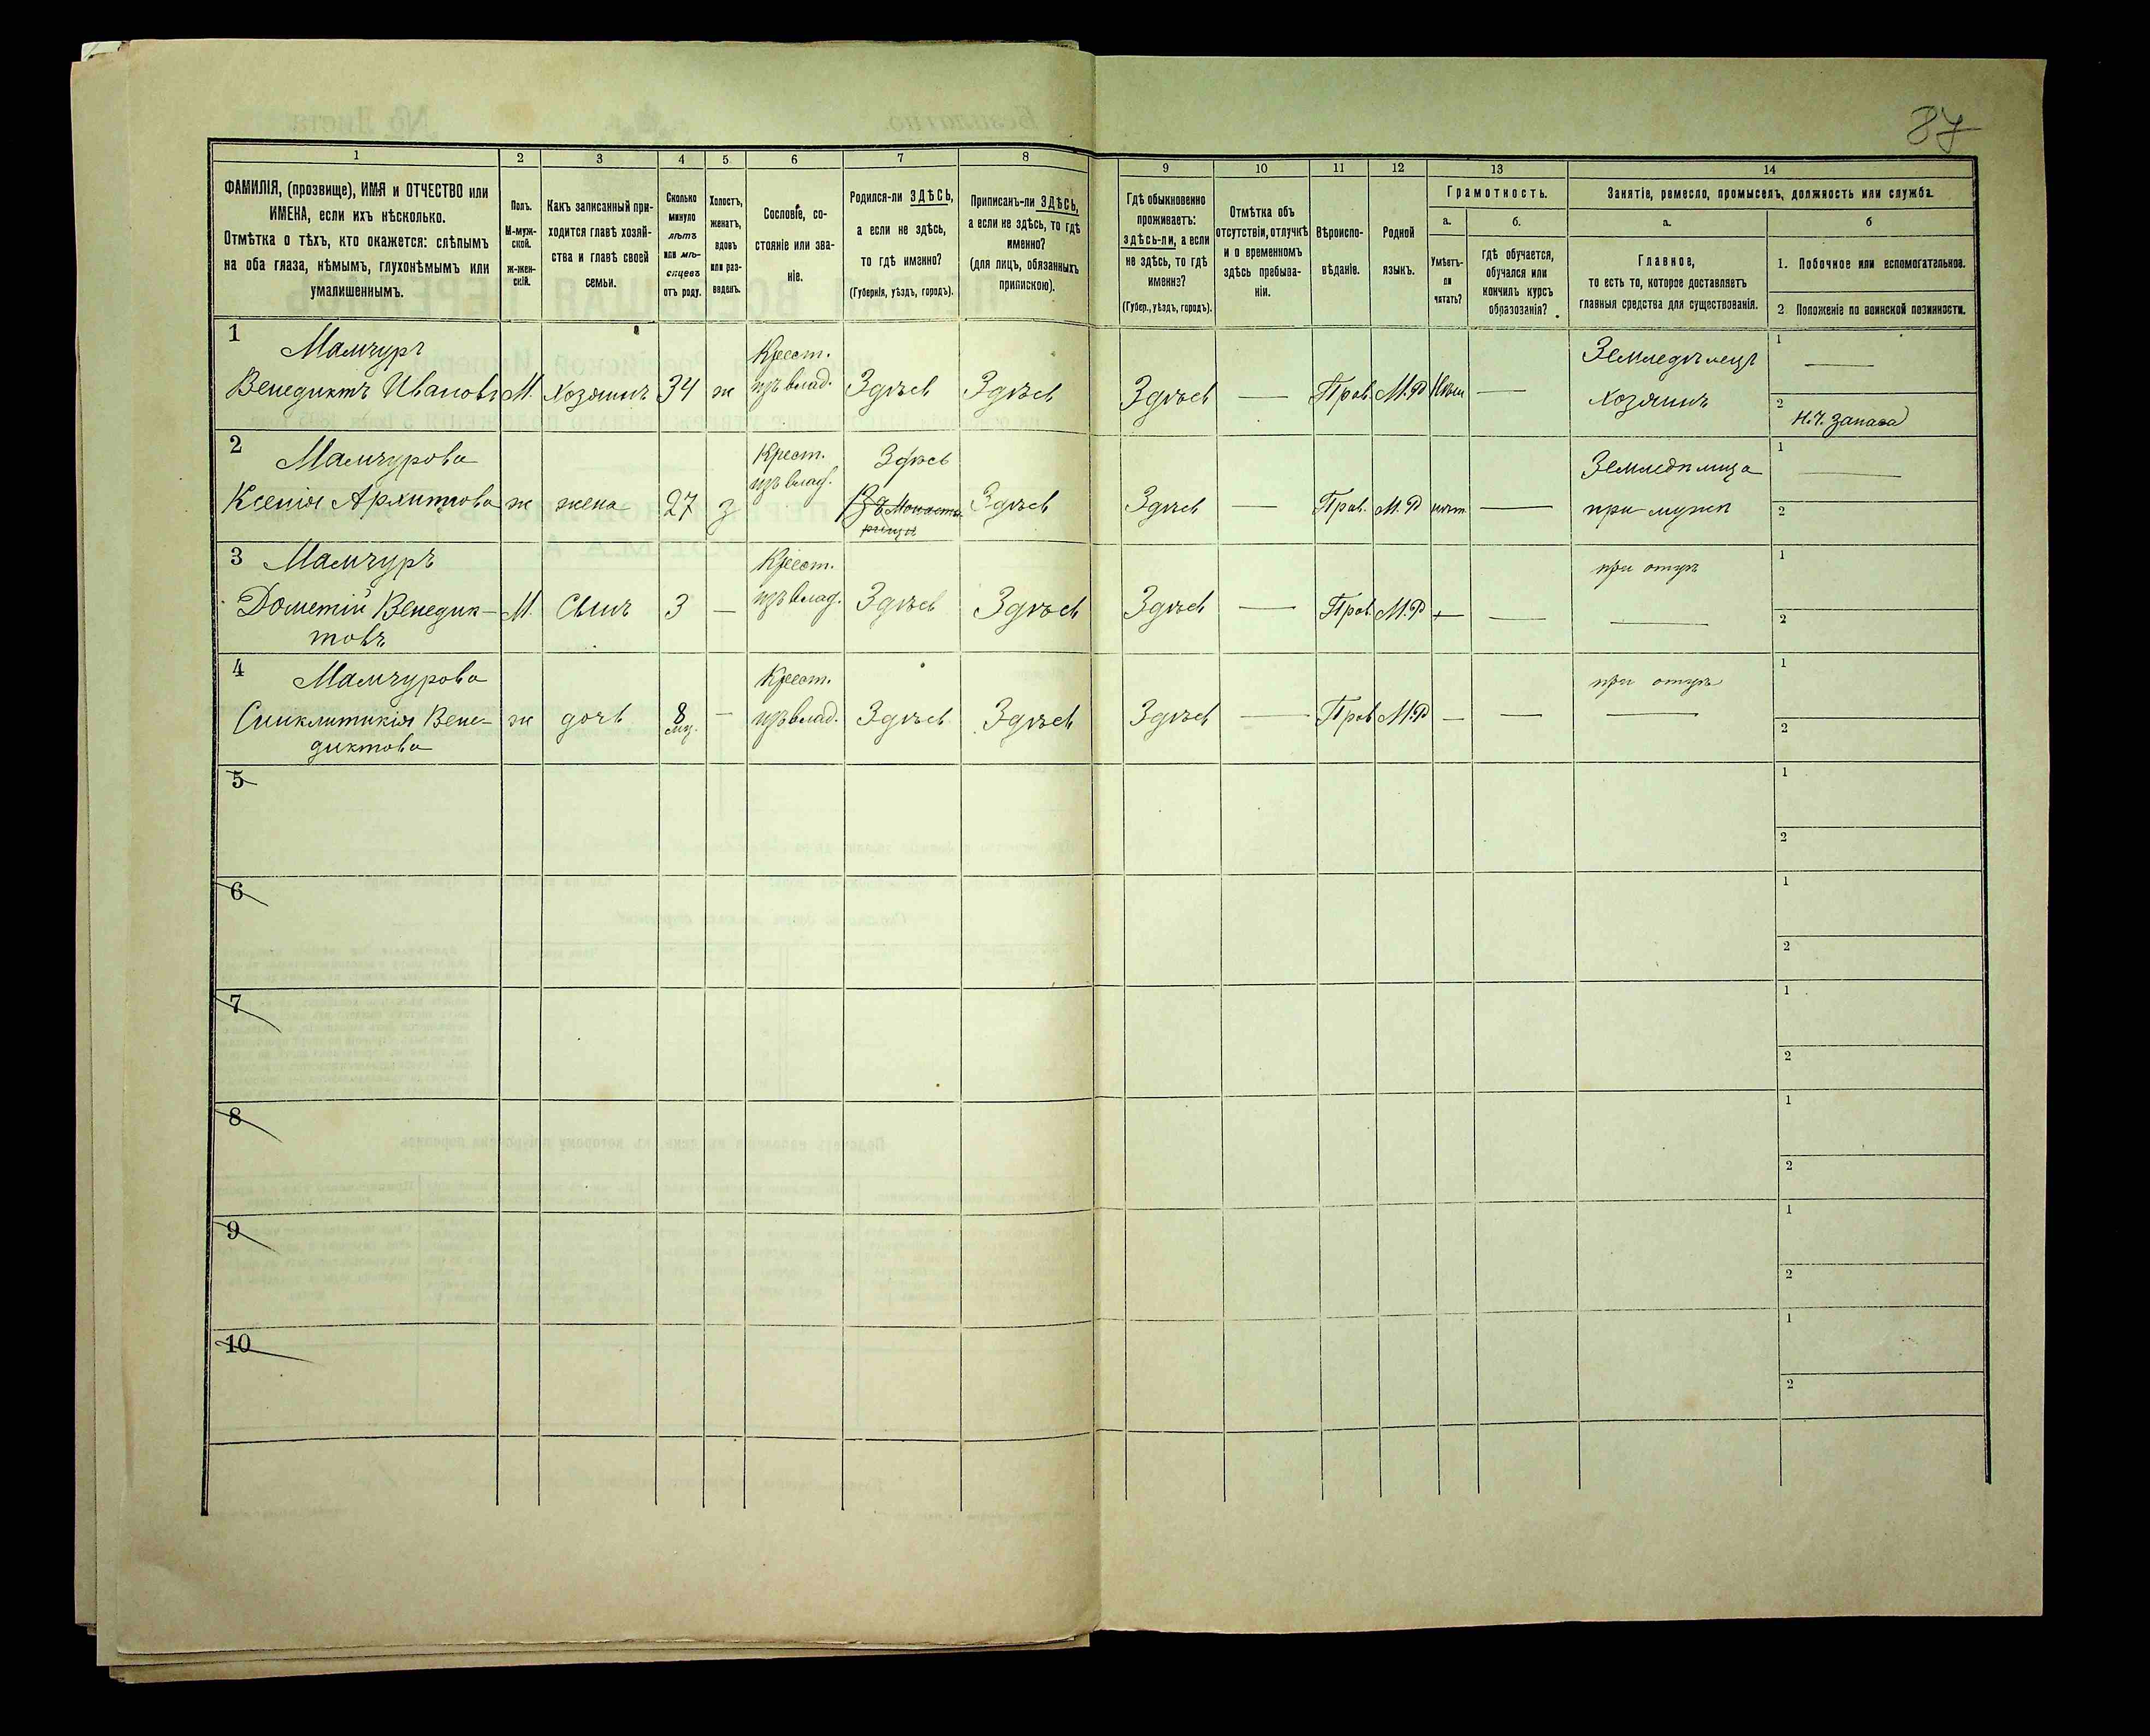 87
1 2 3 4 5 6 7 8 9 10 11 12 13 14
ФАМИЛІЯ, (прозвище), ИМЯ и ОТЧЕСТВО или
ИМЕНА, если ихъ нѣсколько.
Отмѣтка о тѣхъ, кто окажется: слѣпымъ
на оба глаза, нѣмымъ, глухонѣмымъ или
умалишеннымъ.
Полъ.
М-муж-
ской.
ж-жен-
скій.
Какъ записанный при-
ходится главѣ хозяй-
ства и главѣ своей
семьи.
Сколько
минуло
лѣтъ
или мѣ-
сяцевъ
отъ роду.
Холостъ,
женатъ,
вдовъ
или раз-
веденъ.
Сословіе, со-
стояніе или зва-
ніе.
Родился-ли ЗДѢСЬ,
а если не здѣсь,
то гдѣ именно?
(Губернія, уѣздъ, городъ).
Приписанъ-ли ЗДѢСЬ,
а если не здѣсь, то гдѣ
именно?
(для лицъ, обязанныхъ
припискою).
Гдѣ обыкновенно
проживаетъ:
здѣсь-ли, а если
не здѣсь, то гдѣ
именно?
(Губер., уѣздъ, городъ).
Отмѣтка объ
отсутствіи, отлучкѣ
и о временномъ
здѣсь пребыва-
ніи.
Вѣроиспо-
вѣданіе.
Родной
языкъ.
Грамотность.
а.
Умѣетъ-
ли
читать?
б.
гдѣ обучается,
обучался или
кончилъ курсъ
образованія?
Занятіе, ремесло, промыселъ, должность или служба.
а.
Главное,
то есть то, которое доставляетъ
главныя средства для существованія.
б
1. Побочное или вспомогательное.
2. Положеніе по воинской повинности.
1 Мамчуръ Крест. Земледѣлецъ 1 —
Венедиктъ Ивановъ М. Хозяинъ 34 ж изъ влад. Здѣсь Здѣсь Здѣсь — Прав. М.Р — Хозяинъ 2
Н.Ч. запаса
2 Мамчурова Крест. Здѣсь Земледѣлица 1 —
Ксенія Архипова ж жена 27 з изъ влад. Здѣсь Здѣсь — Прав. М.Р нѣт — при мужѣ 2
3 Мамчуръ Крест. при отцѣ 1
Дометій Венедик- М. Сынъ 3 — изъ влад. Здѣсь Здѣсь Здѣсь — Прав. М.Р — — — 2
товъ
4 Мамчурова Крест. при отцѣ 1
Синклитикія Вене- ж дочь 8 мц. — изъ влад. Здѣсь Здѣсь Здѣсь — Прав М.Р — — — 2
диктова
5 1
2
6 1
2
7 1
2
8 1
2
9 1
2
10 1
2